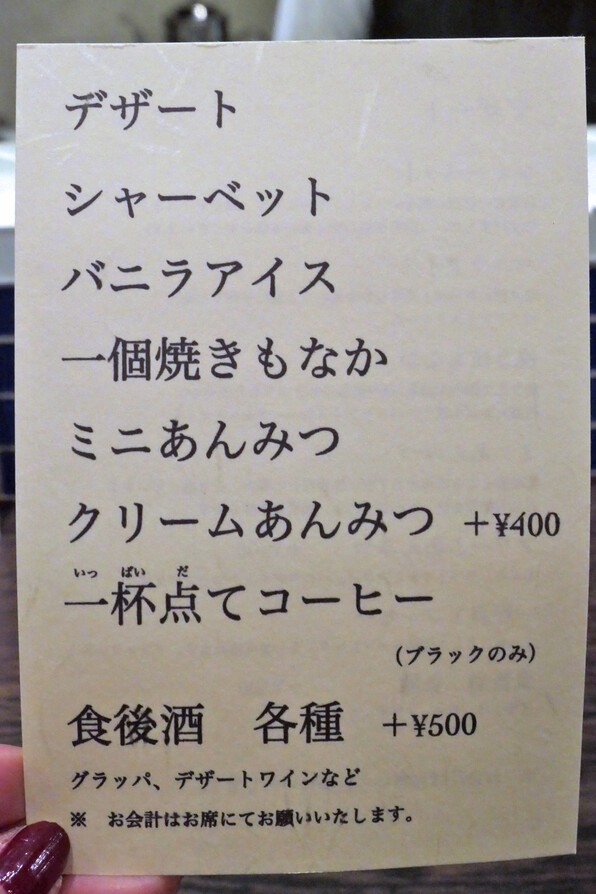 デザート
シャーベット
バニラアイス
一個焼きもなか
ミニあんみつ
クリームあんみつ ＋¥400
いっ ぱい だ
一杯点てコーヒー
（ブラックのみ）
食後酒　各種　＋¥500
グラッパ、デザートワインなど
※　お会計はお席にてお願いいたします。